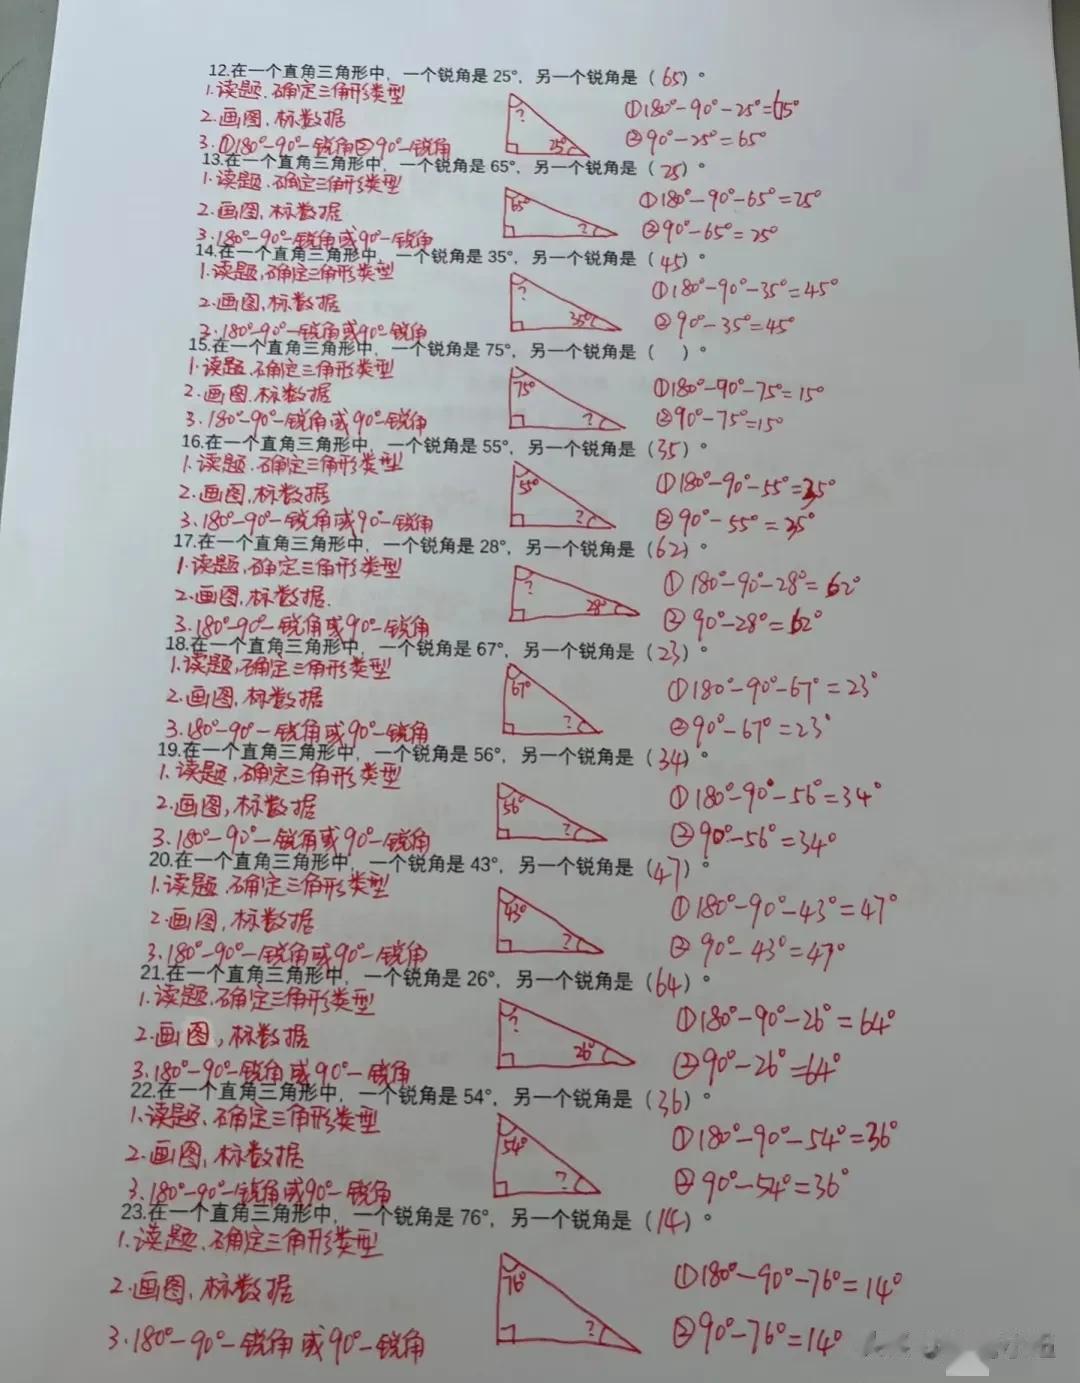 12.在一个直角三角形中，一个锐角是 25°，另一个锐角是（65）°
1.读题.确定三角形类型
2.画图,标数据
3.①180°-90°-锐角②90°-锐角
?
25°
①180°-90°-25°=65°
②90°-25°=65°
13.在一个直角三角形中，一个锐角是 65°，另一个锐角是（25）°
1.读题.确定三角形类型
2.画图,标数据
3.180°-90°-锐角或90°-锐角
65°
?
①180°-90°-65°=25°
②90°-65°=25°
14.在一个直角三角形中，一个锐角是 35°，另一个锐角是（45）°
1.读题,确定三角形类型
2.画图,标数据
3.180°-90°-锐角或90°-锐角
?
35°
①180°-90°-35°=45°
②90°-35°=45°
15.在一个直角三角形中，一个锐角是 75°，另一个锐角是（ ）°
1.读题,确定三角形类型
2.画图.标数据
3.180°-90°-锐角或90°-锐角
75°
?
①180°-90°-75°=15°
②90°-75°=15°
16.在一个直角三角形中，一个锐角是 55°，另一个锐角是（35）°
1.读题.确定三角形类型
2.画图,标数据
3.180°-90°-锐角或90°-锐角
55°
?
①180°-90°-55°=35°
②90°-55°=35°
17.在一个直角三角形中，一个锐角是 28°，另一个锐角是（62）°
1.读题,确定三角形类型
2.画图,标数据.
3.180°-90°-锐角或90°-锐角
?
28°
①180°-90°-28°=62°
②90°-28°=62°
18.在一个直角三角形中，一个锐角是 67°，另一个锐角是（23）°
1.读题,确定三角形类型
2.画图,标数据
3.180°-90°-锐角或90°-锐角
67°
?
①180°-90°-67°=23°
②90°-67°=23°
19.在一个直角三角形中，一个锐角是 56°，另一个锐角是（34）°
1.读题,确定三角形类型
2.画图,标数据
3.180°-90°-锐角或90°-锐角
56°
?
①180°-90°-56°=34°
②90°-56°=34°
20.在一个直角三角形中，一个锐角是 43°，另一个锐角是（47）°
1.读题.确定三角形类型
2.画图,标数据
3.180°-90°-锐角或90°-锐角
43°
?
①180°-90°-43°=47°
②90°-43°=47°
21.在一个直角三角形中，一个锐角是 26°，另一个锐角是（64）°
1.读题.确定三角形类型
2.画图,标数据
3.180°-90°-锐角或90°-锐角
?
26°
①180°-90°-26°=64°
②90°-26°=64°
22.在一个直角三角形中，一个锐角是 54°，另一个锐角是（36）°
1.读题.确定三角形类型
2.画图,标数据
3.180°-90°-锐角或90°-锐角
54°
?
①180°-90°-54°=36°
②90°-54°=36°
23.在一个直角三角形中，一个锐角是 76°，另一个锐角是（14）°
1.读题.确定三角形类型
2.画图,标数据
3.180°-90°-锐角或90°-锐角
76°
?
①180°-90°-76°=14°
②90°-76°=14°